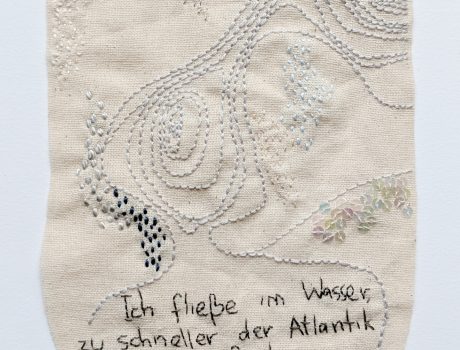 Ich fließe im Wasser,
zu schneller der Atlantik